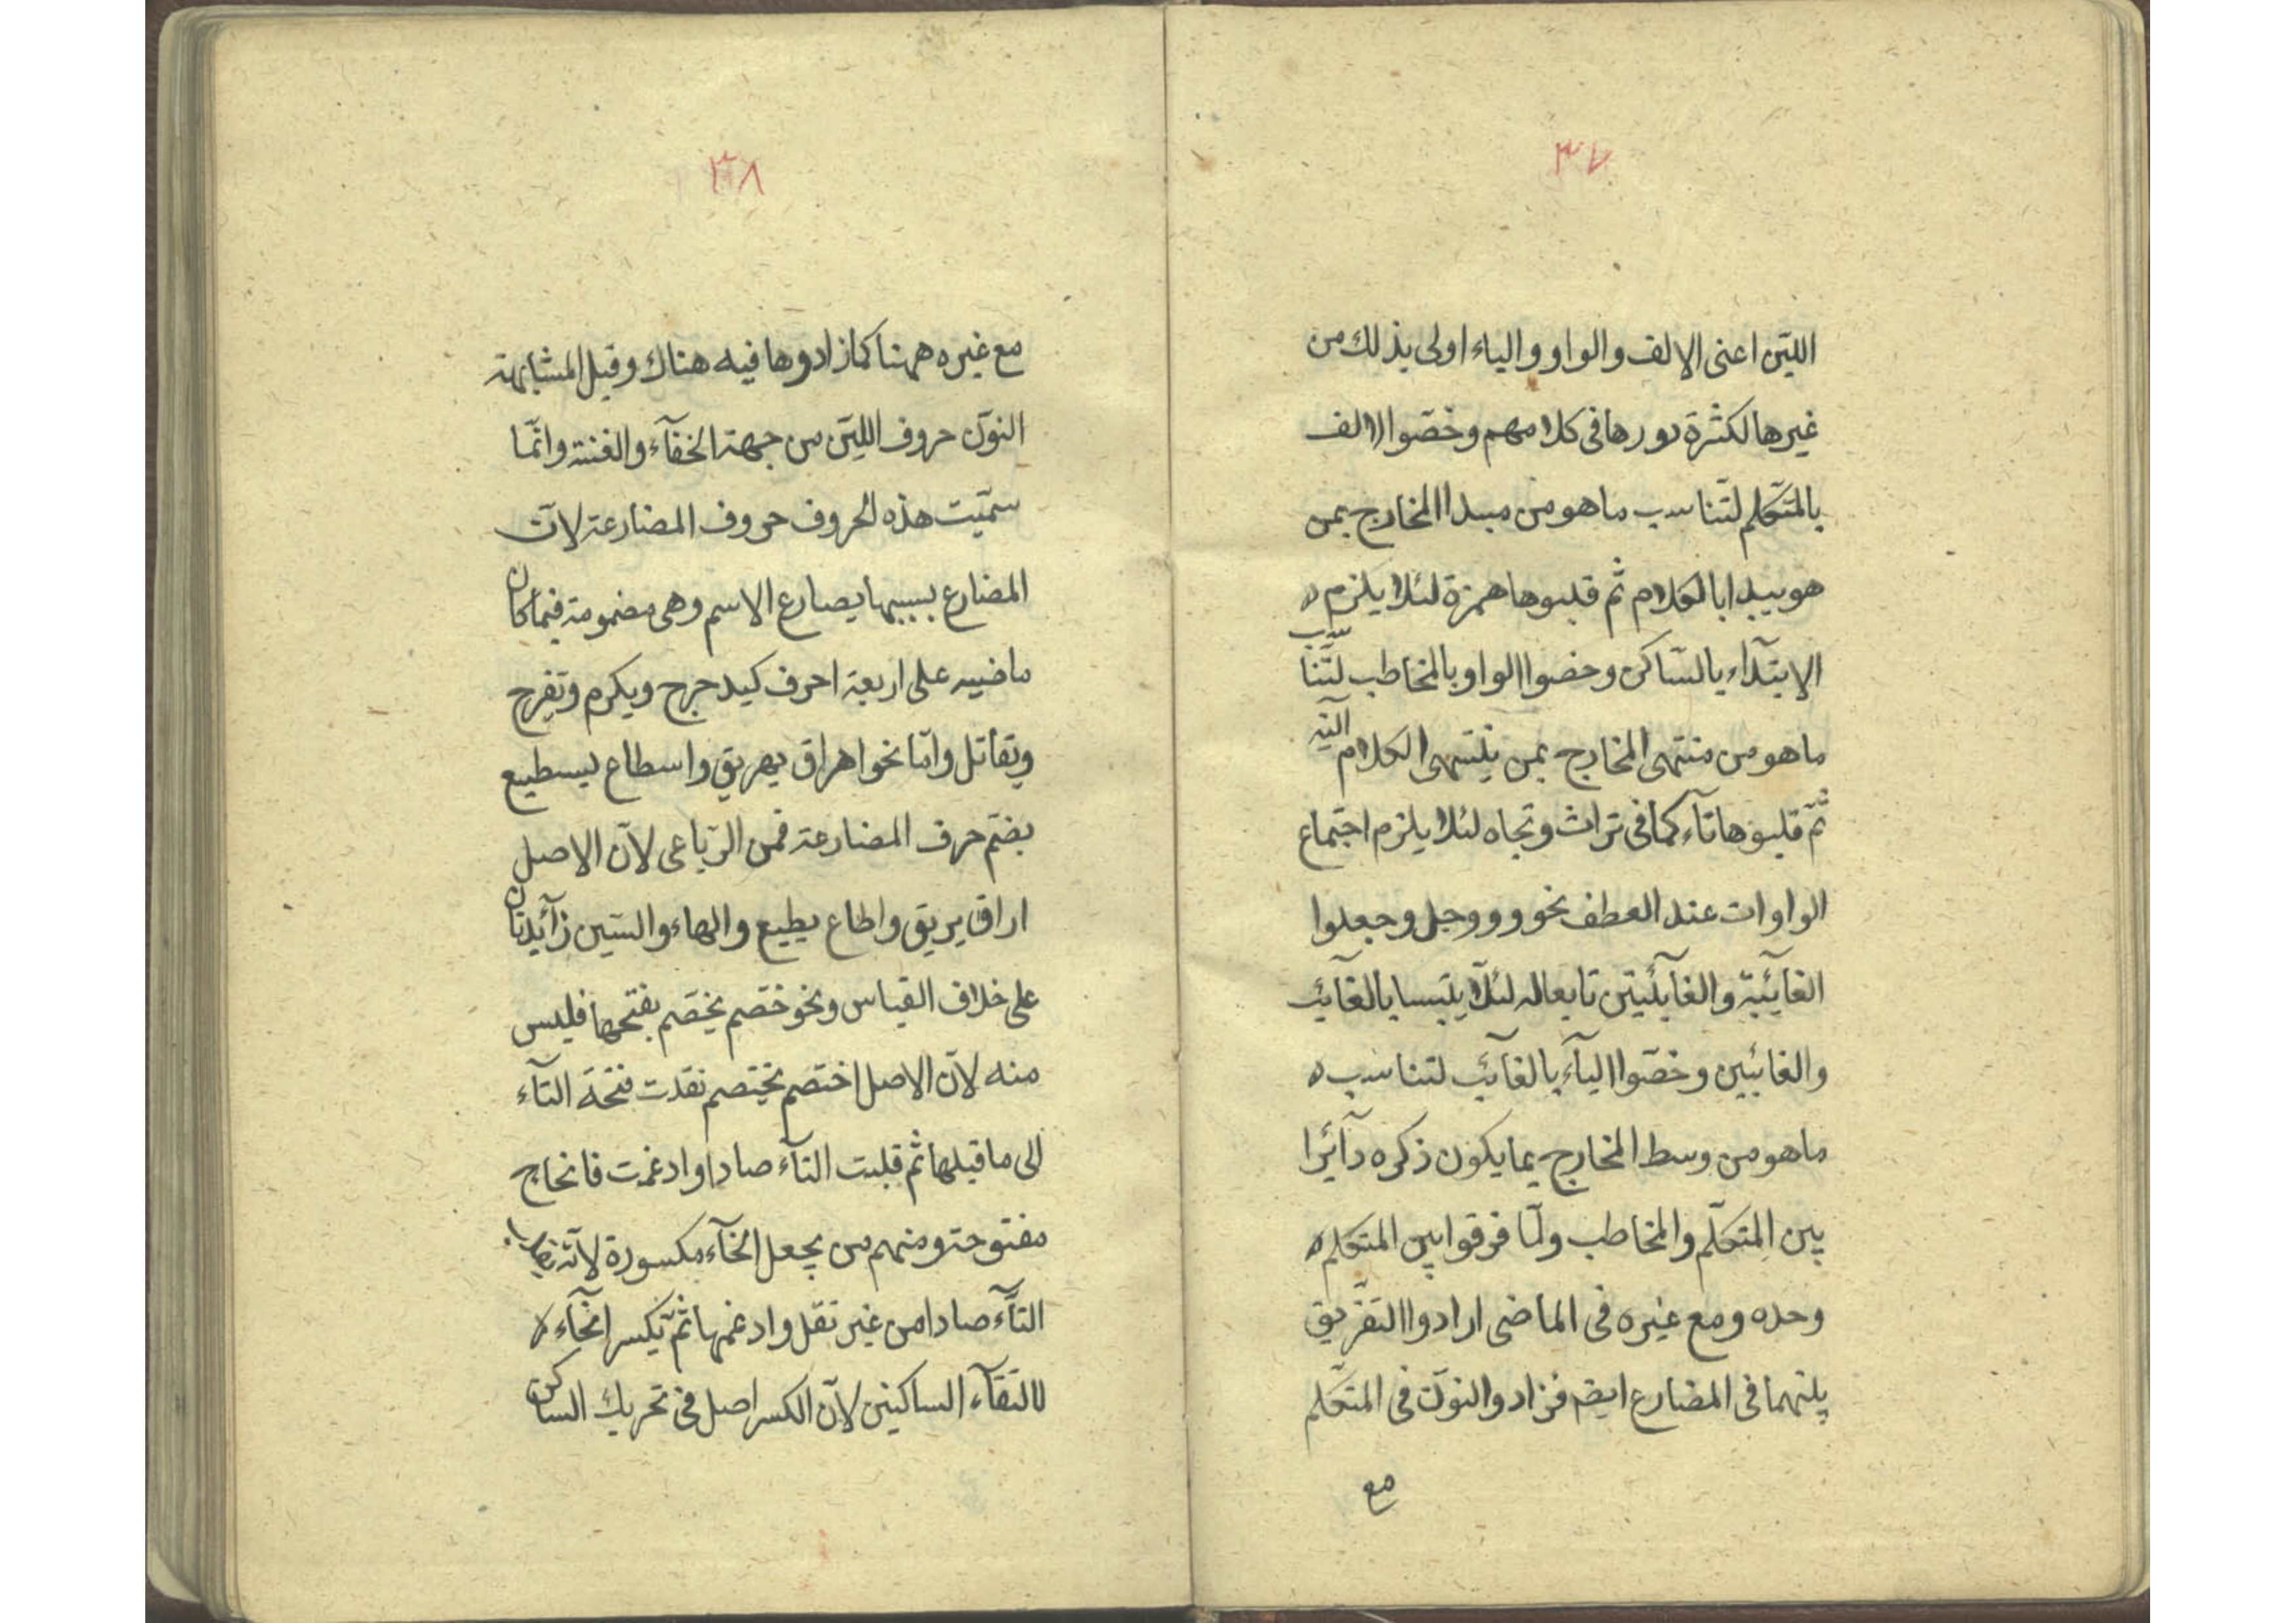 ٣٧
اللين اعنى الالف والواو والياء اولى بذلك من
غيرها لكثرة دورها فى كلامهم وخصّوا الالف
بالمتكلم لتناسب ما هو من مبدا المخارج بمن
هو يبدا بالكلام ثم قلبوها همزة لئلا يلزم
الابتدآء بالسّاكن وخصوا الواو بالمخاطب لتناسب
ما هو من منتهى المخارج بمن ينتهى الكلام اليه
ثم قلبوها تآء كما فى تراث وتجاه لئلا يلزم اجتماع
الواوات عند العطف نحو و ووجل وجعلوا
الغآئبة والغآئبتين تابعا له لئلّا يلتبسا بالغآئب
والغائبين وخصّوا اليآء بالغآئب لتناسب
ما هو من وسط المخارج بما يكون ذكره دآئرا
بين المتكلّم والمخاطب ولمّا فرقوا بين المتكلم
وحده ومع غيره فى الماضى ارادوا التفريق
بينهما فى المضارع ايضم فزادوا النون فى المتكلم
مع
٣٨
مع غيره ههنا كما زادوها فيه هناك وقيل المشابهة
النون حروف اللين من جهة الخفآء والغنة وانّما
سمّيت هذه الحروف حروف المضارعة لانّ
المضارع بسببها يضارع الاسم وهى مضمومة فيما كان
ماضيه على اربعة احرف كيدحرج ويكرم ويفرح
ويقاتل وامّا نحو اهراق يهريق واسطاع يسطيع
بضم حرف المضارعة فمن الرّباعى لانّ الاصل
اراق يريق واطاع يطيع والهاء والسّين زآئدتان
على خلاف القياس ونحو خصّم يخصّم بفتحها فليس
منه لانّ الاصل اختصم يختصم نقلت فتحة التآء
الى ما قبلها ثم قلبت التآء صادا وادغمت فا نحاج
مفتوحة ومنهم من يجعل الخآء مكسورة لانّه
التّآء صادا من غير نقل وادغمها ثمّ يكسر الخآء
لالتقآء الساكنين لانّ الكسر اصل فى تحريك الساكن